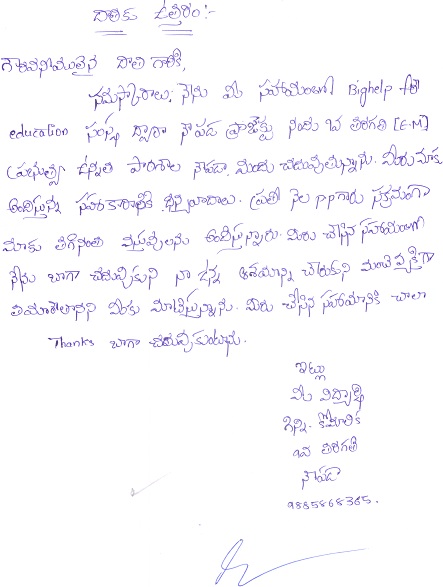 దాతకు ఉత్తరం:-
గౌరవనీయులైన దాత గారికి,
నమస్కారాలు; నేను మీ సహాయంతో Bighelp for
education సంస్థ ద్వారా నౌపడ ప్రాజెక్టు నందు 9వ తరగతి [E.M]
ప్రభుత్వ ఉన్నత పాఠశాల నౌపడా నందు చదువుతున్నాను. మీరు మాకు
అందిస్తున్న సహకారానికి ధన్యవాదాలు. ప్రతి నెల గారు సక్రమంగా
మాకు తగినంత వస్తువులను అందిస్తున్నారు. మీరు చేసిన సహాయంతో
నేను బాగా చదువుకుని నా ఉన్నత ఆశయాన్ని చేరుకుని మంచి వ్యక్తిగా
తయారౌతానని మీకు మాటిస్తున్నాను. మీరు చేసిన సహాయానికి చాలా
Thanks బాగా చదువుకుంటాను.
ఇట్లు
మీ విద్యార్థి
గిన్ని. కోమలిక
9వ తరగతి
నౌపడా
9885868385.